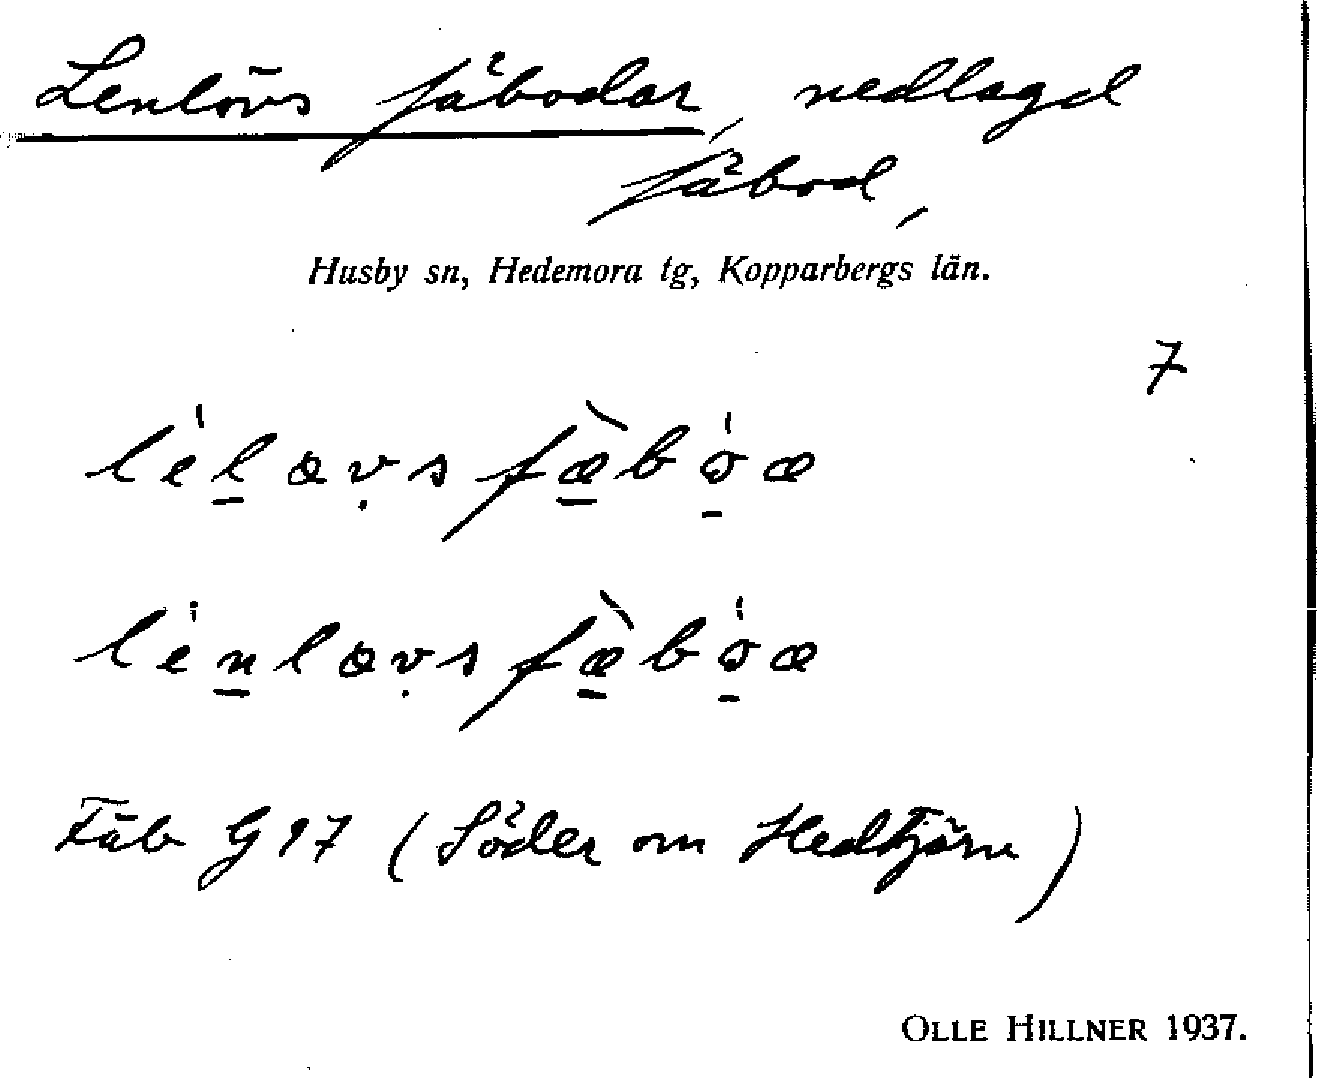 Lenlövs fäbodar, nedlagd
fäbod,
Husby sn, Hedemora tg, Kopparbergs län.
7
Fäb G 17 (Söder om Hedtjärn)
OLLE HILLNER 1937.